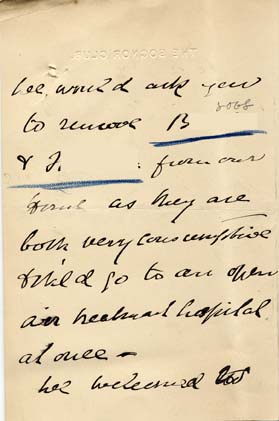 THE SOCKOR CLUB
we, would ask you
8068
to remove B
& J. : from our
Home as they are
both very consumptive
& sh'ld go to an open
air treatment hospital
at once –
We welcomed